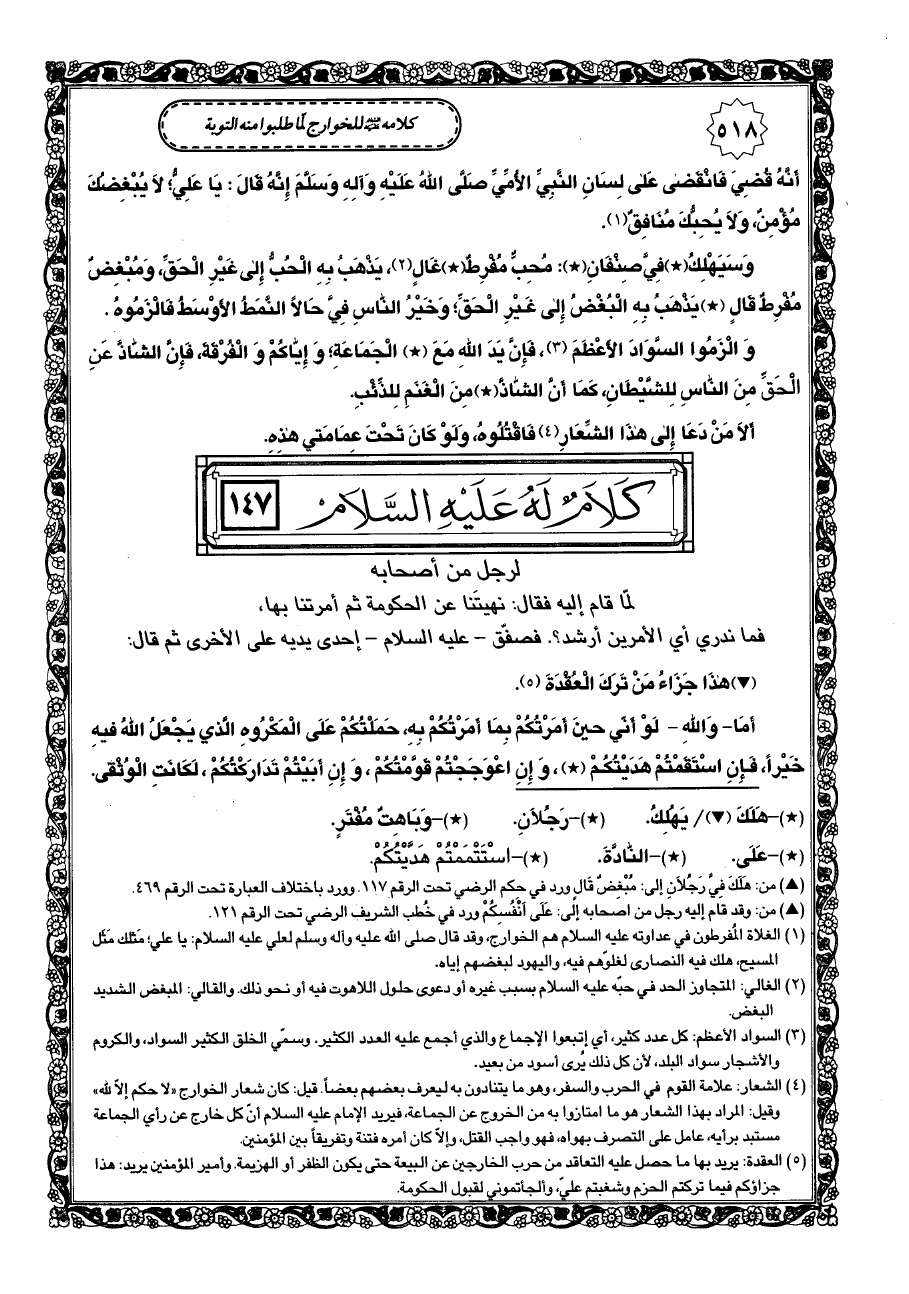 ٥١٨
كلامه عليه السلام للخوارج لمّا طلبوا منه التوبة
أَنَّهُ قُضِيَ فَانْقَضَى عَلَى لِسَانِ النَّبِيِّ الأُمِّيِّ صَلَّى اللهُ عَلَيْهِ وَآلِهِ وَسَلَّمَ إِنَّهُ قَالَ : يَا عَلِيُّ؛ لاَ يُبْغِضُكَ
مُؤْمِنٌ، وَلاَ يُحِبُّكَ مُنَافِقٌ(١).
وَسَيَهْلِكُ(★)فِيَّ صِنْفَانِ(★): مُحِبٌّ مُفْرِطٌ(★)غَالٍ(٢)، يَذْهَبُ بِهِ الْحُبُّ إِلى غَيْرِ الْحَقِّ، وَمُبْغِضٌ
مُفْرِطٌ قَالٍ (★)يَذْهَبُ بِهِ الْبُغْضُ إِلى غَيْرِ الْحَقِّ؛ وَخَيْرُ النَّاسِ فِيَّ حَالاً النَّمَطُ الأَوْسَطُ فَالْزَمُوهُ .
وَ الْزَمُوا السَّوَادَ الأَعْظَمَ (٣)، فَإِنَّ يَدَ اللهِ مَعَ (★) الْجَمَاعَةِ؛ وَ إِيَّاكُمْ وَ الْفُرْقَةَ، فَإِنَّ الشَّاذَّ عَنِ
الْحَقِّ مِنَ النَّاسِ لِلشَّيْطَانِ، كَمَا أَنَّ الشَّاذَّ(★)مِنَ الْغَنَمِ لِلذِّئْبِ.
أَلاَ مَنْ دَعَا إِلى هذَا الشِّعَارِ(٤)فَاقْتُلُوهُ، وَلَوْ كَانَ تَحْتَ عِمَامَتي هذِهِ.
كَلاَمٌ لَهُ عَلَيْهِ السَّلاَمُ ١٤٧
لرجل من أصحابه
لمّا قام إليه فقال: نهيتَنا عن الحكومة ثم أمرتنا بها،
فما ندري أي الأمرين أرشد؟. فصفّق – عليه السلام – إحدى يديه على الأخرى ثم قال:
(▼)هذَا جَزَاءُ مَنْ تَرَكَ الْعُقْدَةَ (٥).
أَمَا– وَاللهِ – لَوْ أَنّي حينَ أَمَرْتُكُمْ بِمَا أَمَرْتُكُمْ بِهِ، حَمَلْتُكُمْ عَلَى الْمَكْرُوهِ الَّذي يَجْعَلُ اللهُ فيهِ
خَيْراً، فَإِنِ اسْتَقَمْتُمْ هَدَيْتُكُمْ (★)، وَ إِنِ اعْوَجَجْتُمْ قَوَّمْتُكُمْ ، وَ إِنِ أَبَيْتُمْ تَدَارَكْتُكُمْ ، لَكَانَتِ الْوُثْقَى.
(★)–هَلَكَ (▼)/ يَهْلِكُ. (★)–رَجُلاَنِ. (★)–وَبَاهِتٌ مُفْتَرٍ.
(★)–عَلَى. (★)–النَّادَّةَ. (★)–اسْتَتْمَمْتُمْ هَدَيْتُكُمْ.
(▲) من: هَلَكَ فِيَّ رَجُلاَنِ إلى: مُبْغِضٌ قَالٍ ورد في حكم الرضي تحت الرقم ١١٧. وورد باختلاف العبارة تحت الرقم ٤٦٩.
(▲) من: وقد قام إليه رجل من اصحابه إلى: عَلَى أَنْفُسِكُمْ ورد في خُطب الشريف الرضي تحت الرقم ١٢١.
(١) الغلاة المُفرطون في عداوته عليه السلام هم الخوارج، وقد قال صلى الله عليه وآله وسلم لعلي عليه السلام: يا علي؛ مَثَلك مَثَل
المسيح، هلك فيه النصارى لغلوّهم فيه، واليهود لبغضهم إياه.
(٢) الغالي: المتجاوز الحد في حبّه عليه السلام بسبب غيره أو دعوى حلول اللاهوت فيه أو نحو ذلك. والقالي: المبغض الشديد
البغض.
(٣) السواد الأعظم: كل عدد كثير، أي إتبعوا الإجماع والذي أجمع عليه العدد الكثير. وسمّي الخلق الكثير السواد، والكروم
والأشجار سواد البلد، لأن كل ذلك يُرى أسود من بعيد.
(٤) الشعار: علامة القوم في الحرب والسفر، وهو ما يتنادون به ليعرف بعضهم بعضاً. قيل: كان شعار الخوارج «لا حكم إلاّ لله»
وقيل: المراد بهذا الشعار هو ما امتازوا به من الخروج عن الجماعة، فيريد الإمام عليه السلام أنّ كل خارج عن رأي الجماعة
مستبد برأيه، عامل على التصرف بهواه، فهو واجب القتل، وإلاّ كان أمره فتنة وتفريقاً بين المؤمنين.
(٥) العقدة: يريد بها ما حصل عليه التعاقد من حرب الخارجين عن البيعة حتى يكون الظفر أو الهزيمة. وأمير المؤمنين يريد: هذا
جزاؤكم فيما تركتم الحزم وشغبتم عليّ، وألجأتموني لقبول الحكومة.